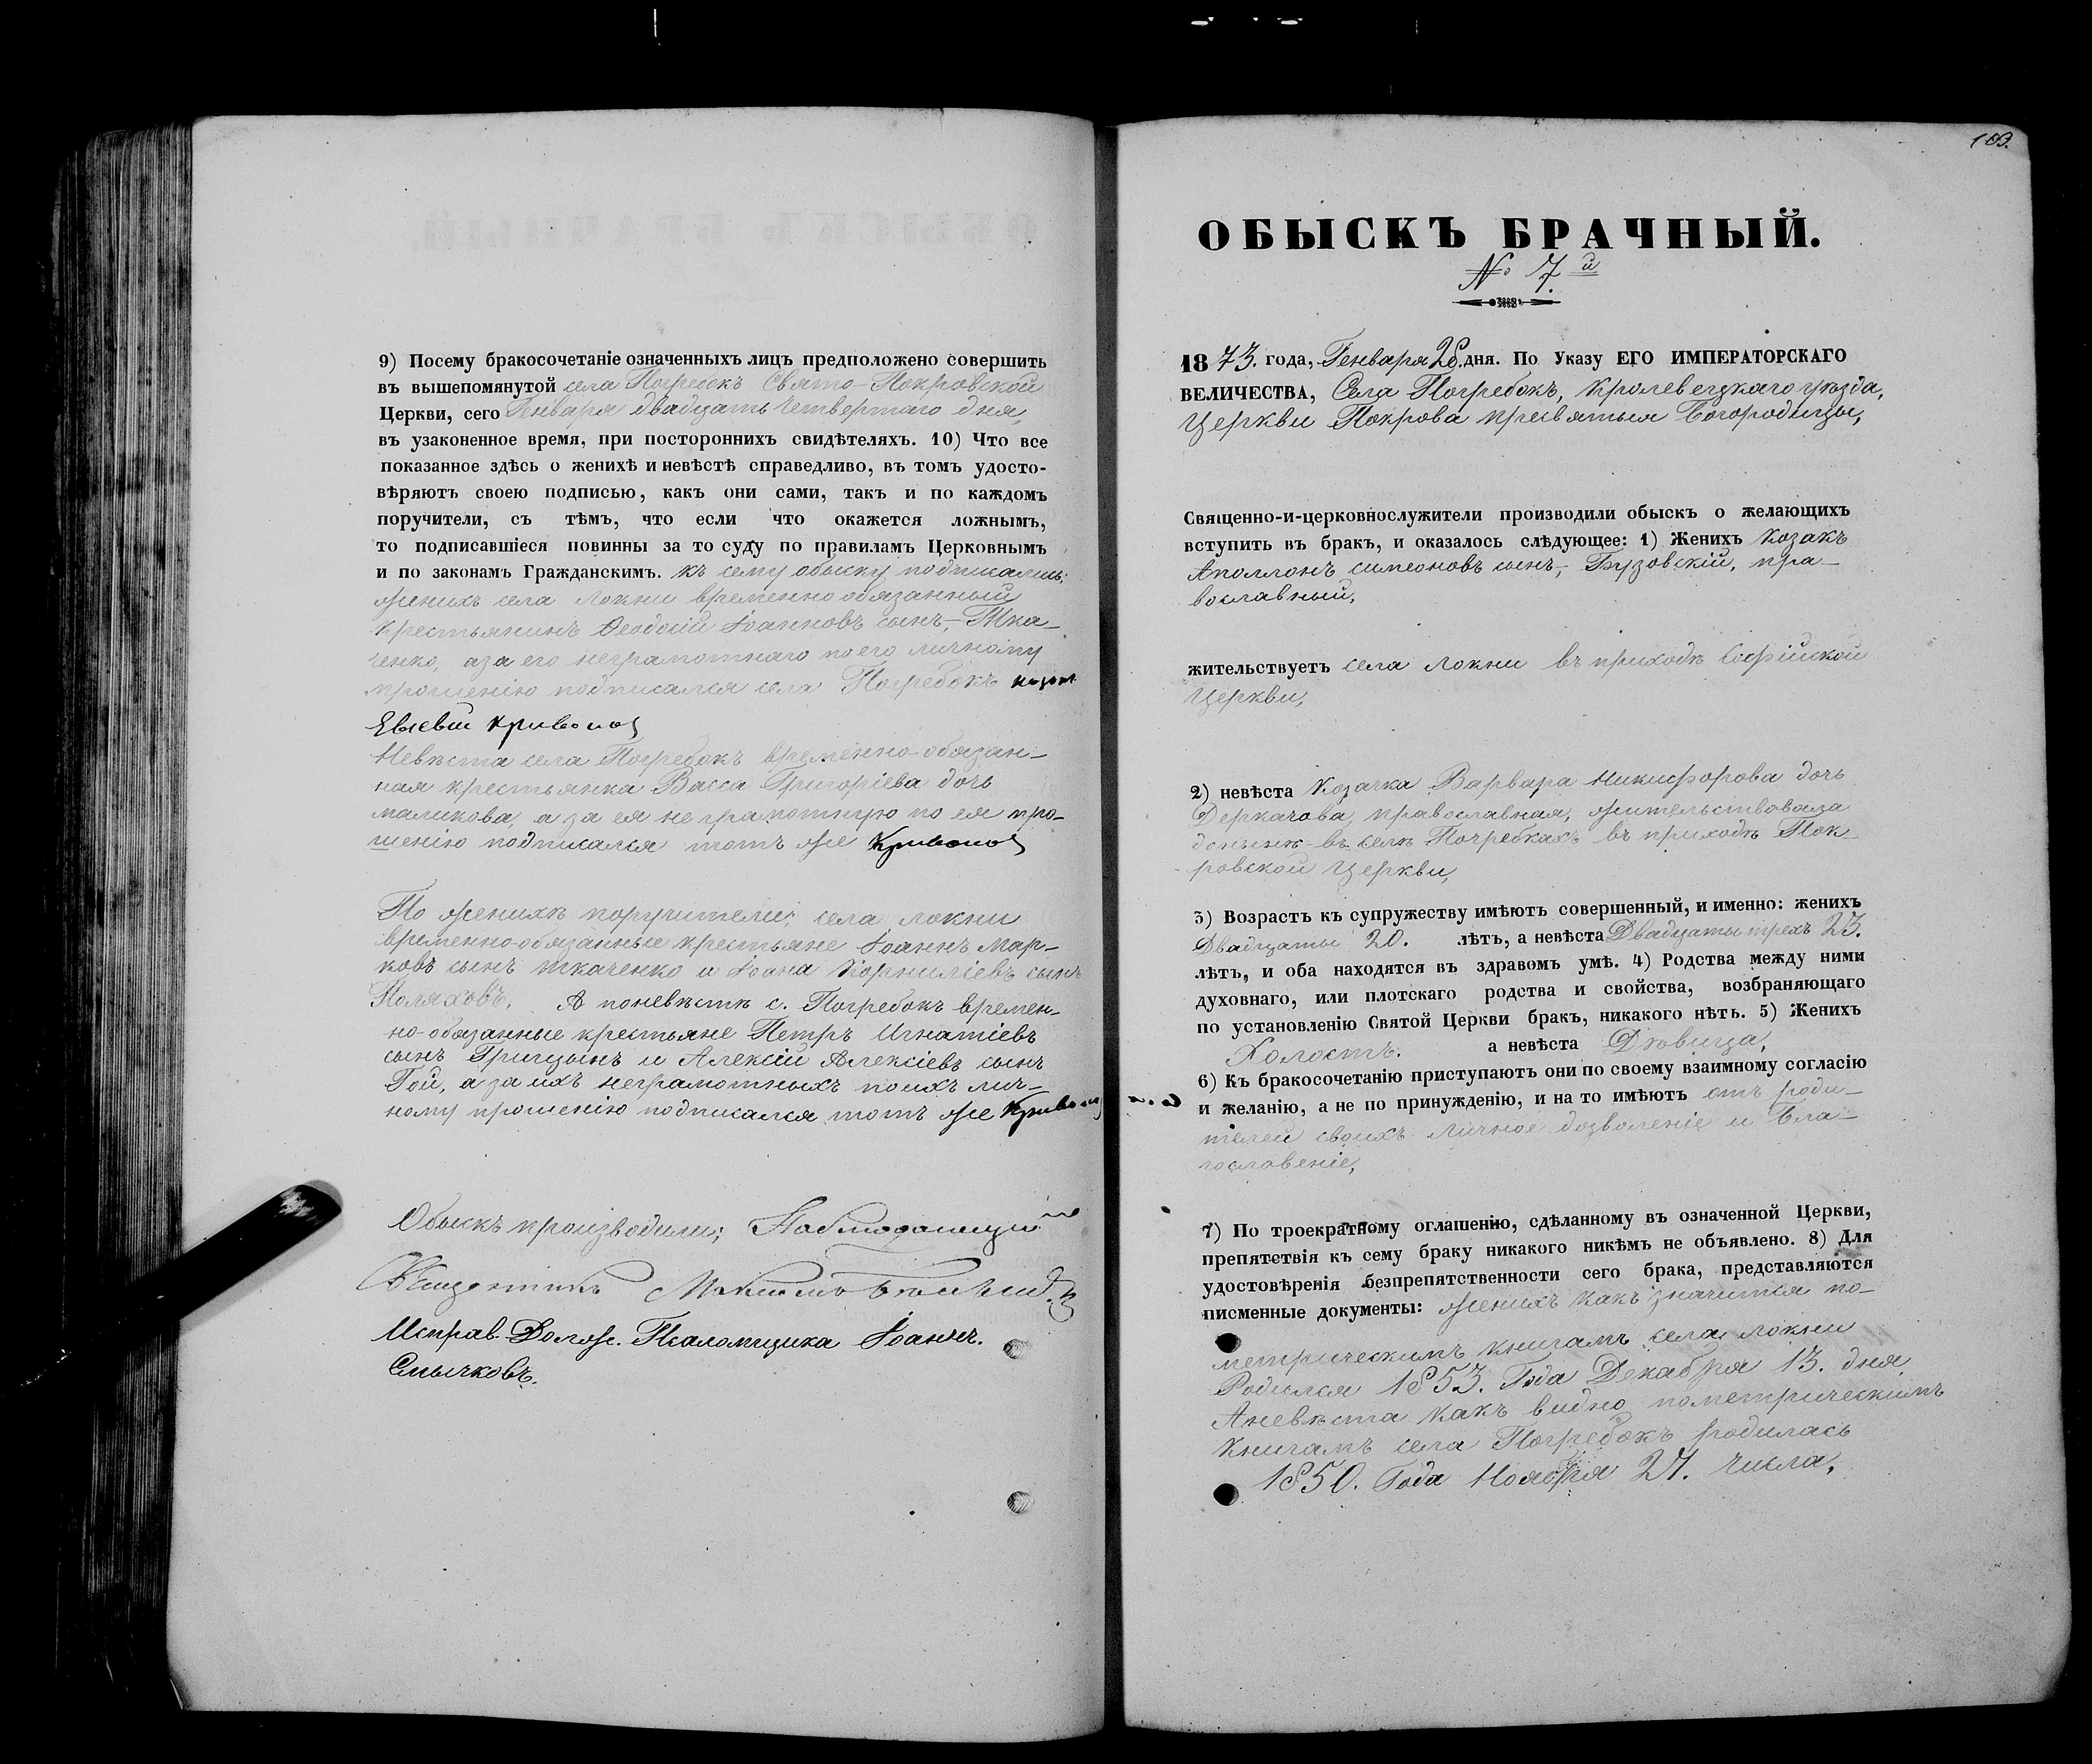 9) Посему бракосочетаніе означенныхъ лицъ предположено совершить
въ вышепомянутой села Погребокъ Свято-Покровской
Церкви, сего Генваря двадцать четвертаго дня,
въ узаконенное время, при постороннихъ свидѣтеляхъ. 10) Что все
показанное здѣсь о женихѣ и невѣстѣ справедливо, въ томъ удосто-
вѣряютъ своею подписью, какъ они сами, такъ и по каждомъ
поручители, съ тѣмъ, что если что окажется ложнымъ,
то подписавшіеся повинны за то суду по правиламъ Церковнымъ
и по законамъ Гражданскимъ. Къ сему обыску подписались:
женихъ села Локни временно обязанный
крестьянинъ Ѳеодосій Іоанновъ сынъ, Тка-
ченко, а за его неграмотнаго по его личному
прошенію подписался села Погребокъ козак
Евсевій Кривонос
Невѣста села Погребокъ временно-обязан-
ная крестьянка Васса Григоріева дочь
маликова, а за ея неграмотную по ея про-
шенію подписался тотъ же Кривонос
По женихѣ поручители: села Локни
временно-обязанные крестьяне Іоаннъ Мар-
ковъ сынъ Ткаченко и Іоанъ Корниліевъ сынъ
Поляховъ. А по невѣстѣ с. Погребокъ времен-
но-обязанные крестьяне Петръ Игнатіевъ
сынъ Грицынъ и Алексій Алексіевъ сынъ
Гой, а за ихъ неграмотныхъ по ихъ лич-
ному прошенію подписался тотъ же Кривонос
Обыскъ производили; Наблюдающій
Священникъ Максимъ
Исправ. Долж. Псаломщика Іоаннъ.
Смычковъ.
103.
ОБЫСКЪ БРАЧНЫЙ.
№ 7.й
1873. года, Генваря 28. дня. По Указу ЕГО ИМПЕРАТОРСКАГО
ВЕЛИЧЕСТВА, Села Погребокъ, Кролевецкаго уѣзда,
Церкви Покрова пресвятыя Богородицы,
Священно-и-церковнослужители производили обыскъ о желающихъ
вступить въ бракъ, и оказалось слѣдующее: 1) Женихъ Козакъ
Аполлонъ Симеоновъ сынъ, Бузовскій, пра-
вославный,
жительствуетъ села Локни въ приходѣ Софійской
Церкви,
2) невѣста Козачка Варвара Никифорова дочь
Деркачова, православная, жительствовала
донынѣ въ селѣ Погребкахъ въ приходѣ Пок-
ровской Церкви,
3) Возрастъ къ супружеству имѣютъ совершенный, и именно: женихъ
Двадцати 20. лѣтъ, а невѣста Двадцати трехъ 23.
лѣтъ, и оба находятся въ здравомъ умѣ. 4) Родства между ними
духовнаго, или плотскаго родства и свойства, возбраняющаго
по установленію Святой Церкви бракъ, никакого нѣтъ. 5) Женихъ
Холостъ. а невѣста Дѣвица,
6) Къ бракосочетанію приступаютъ они по своему взаимному согласію
и желанію, а не по принужденію, и на то имѣютъ отъ роди-
телей своихъ личное дозволеніе и бла-
гословеніе,
7) По троекратному оглашенію, сдѣланному въ означенной Церкви,
препятствія къ сему браку никакого никѣмъ не объявлено. 8) Для
удостовѣренія безпрепятственности сего брака, представляются
писменные документы: женихъ какъ значится по-
метрическимъ книгамъ села Локни
Родился 1853. Года Декабря 13. дня
А невѣста какъ видно пометрическимъ
книгамъ села Погребокъ родилась
1850. Года Ноября 27. числа,